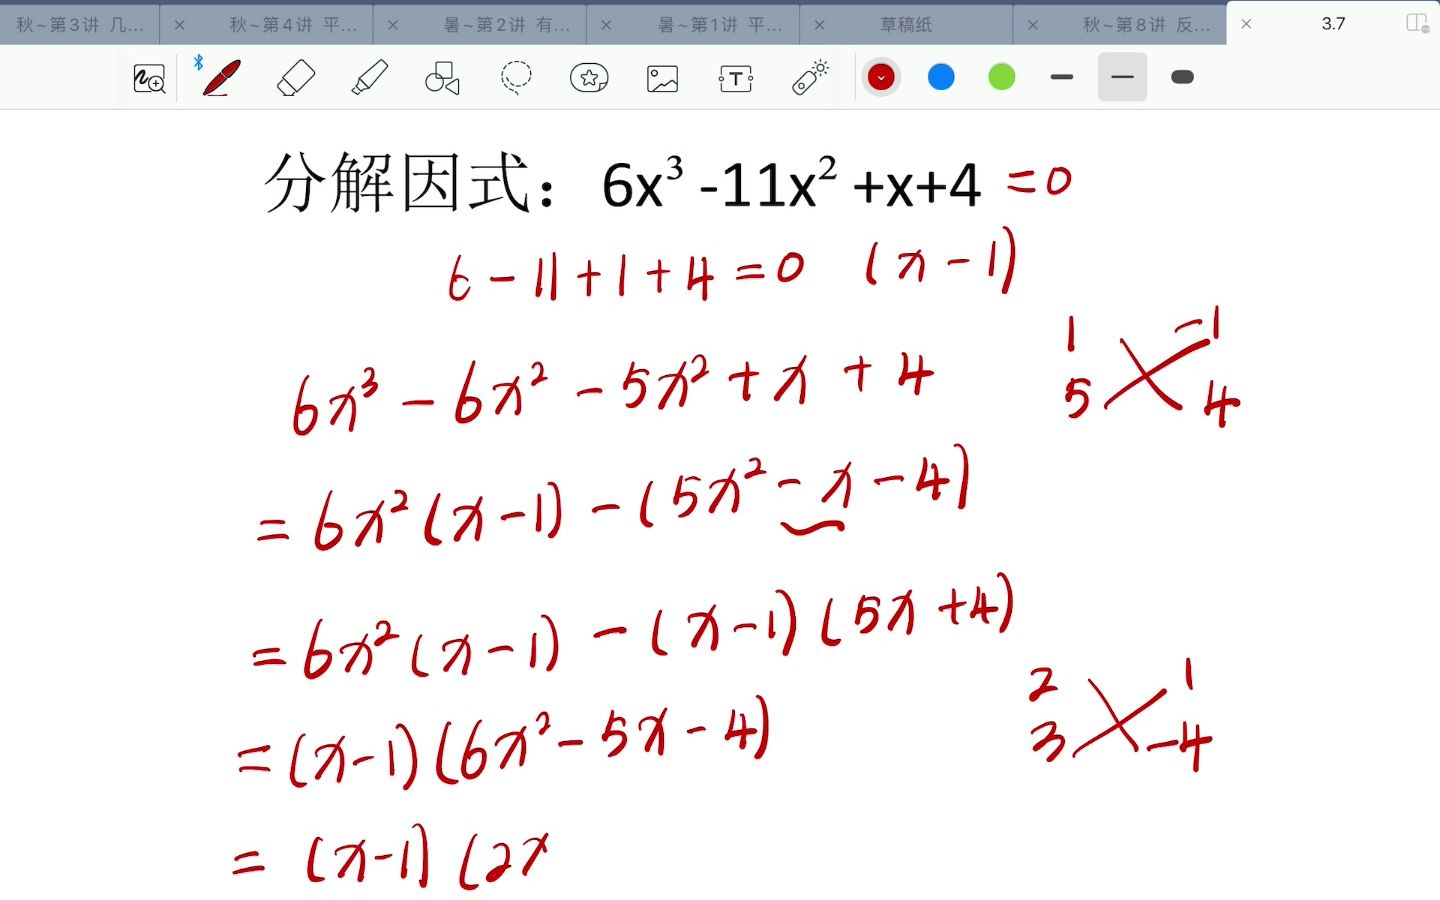 秋~第3讲 几... × 秋~第4讲 平... × 暑~第2讲 有... × 暑~第1讲 平... × 草稿纸 × 秋~第8讲 反... × 3.7
T
分解因式：6x³ -11x² +x+4 =0
6-11+1+4=0 (x-1)
1 -1
6x³-6x²-5x²+x+4
5 4
=6x²(x-1)-(5x²-x-4)
=6x²(x-1)-(x-1)(5x+4)
2 1
=(x-1)(6x²-5x-4)
3 -4
=(x-1)(2x